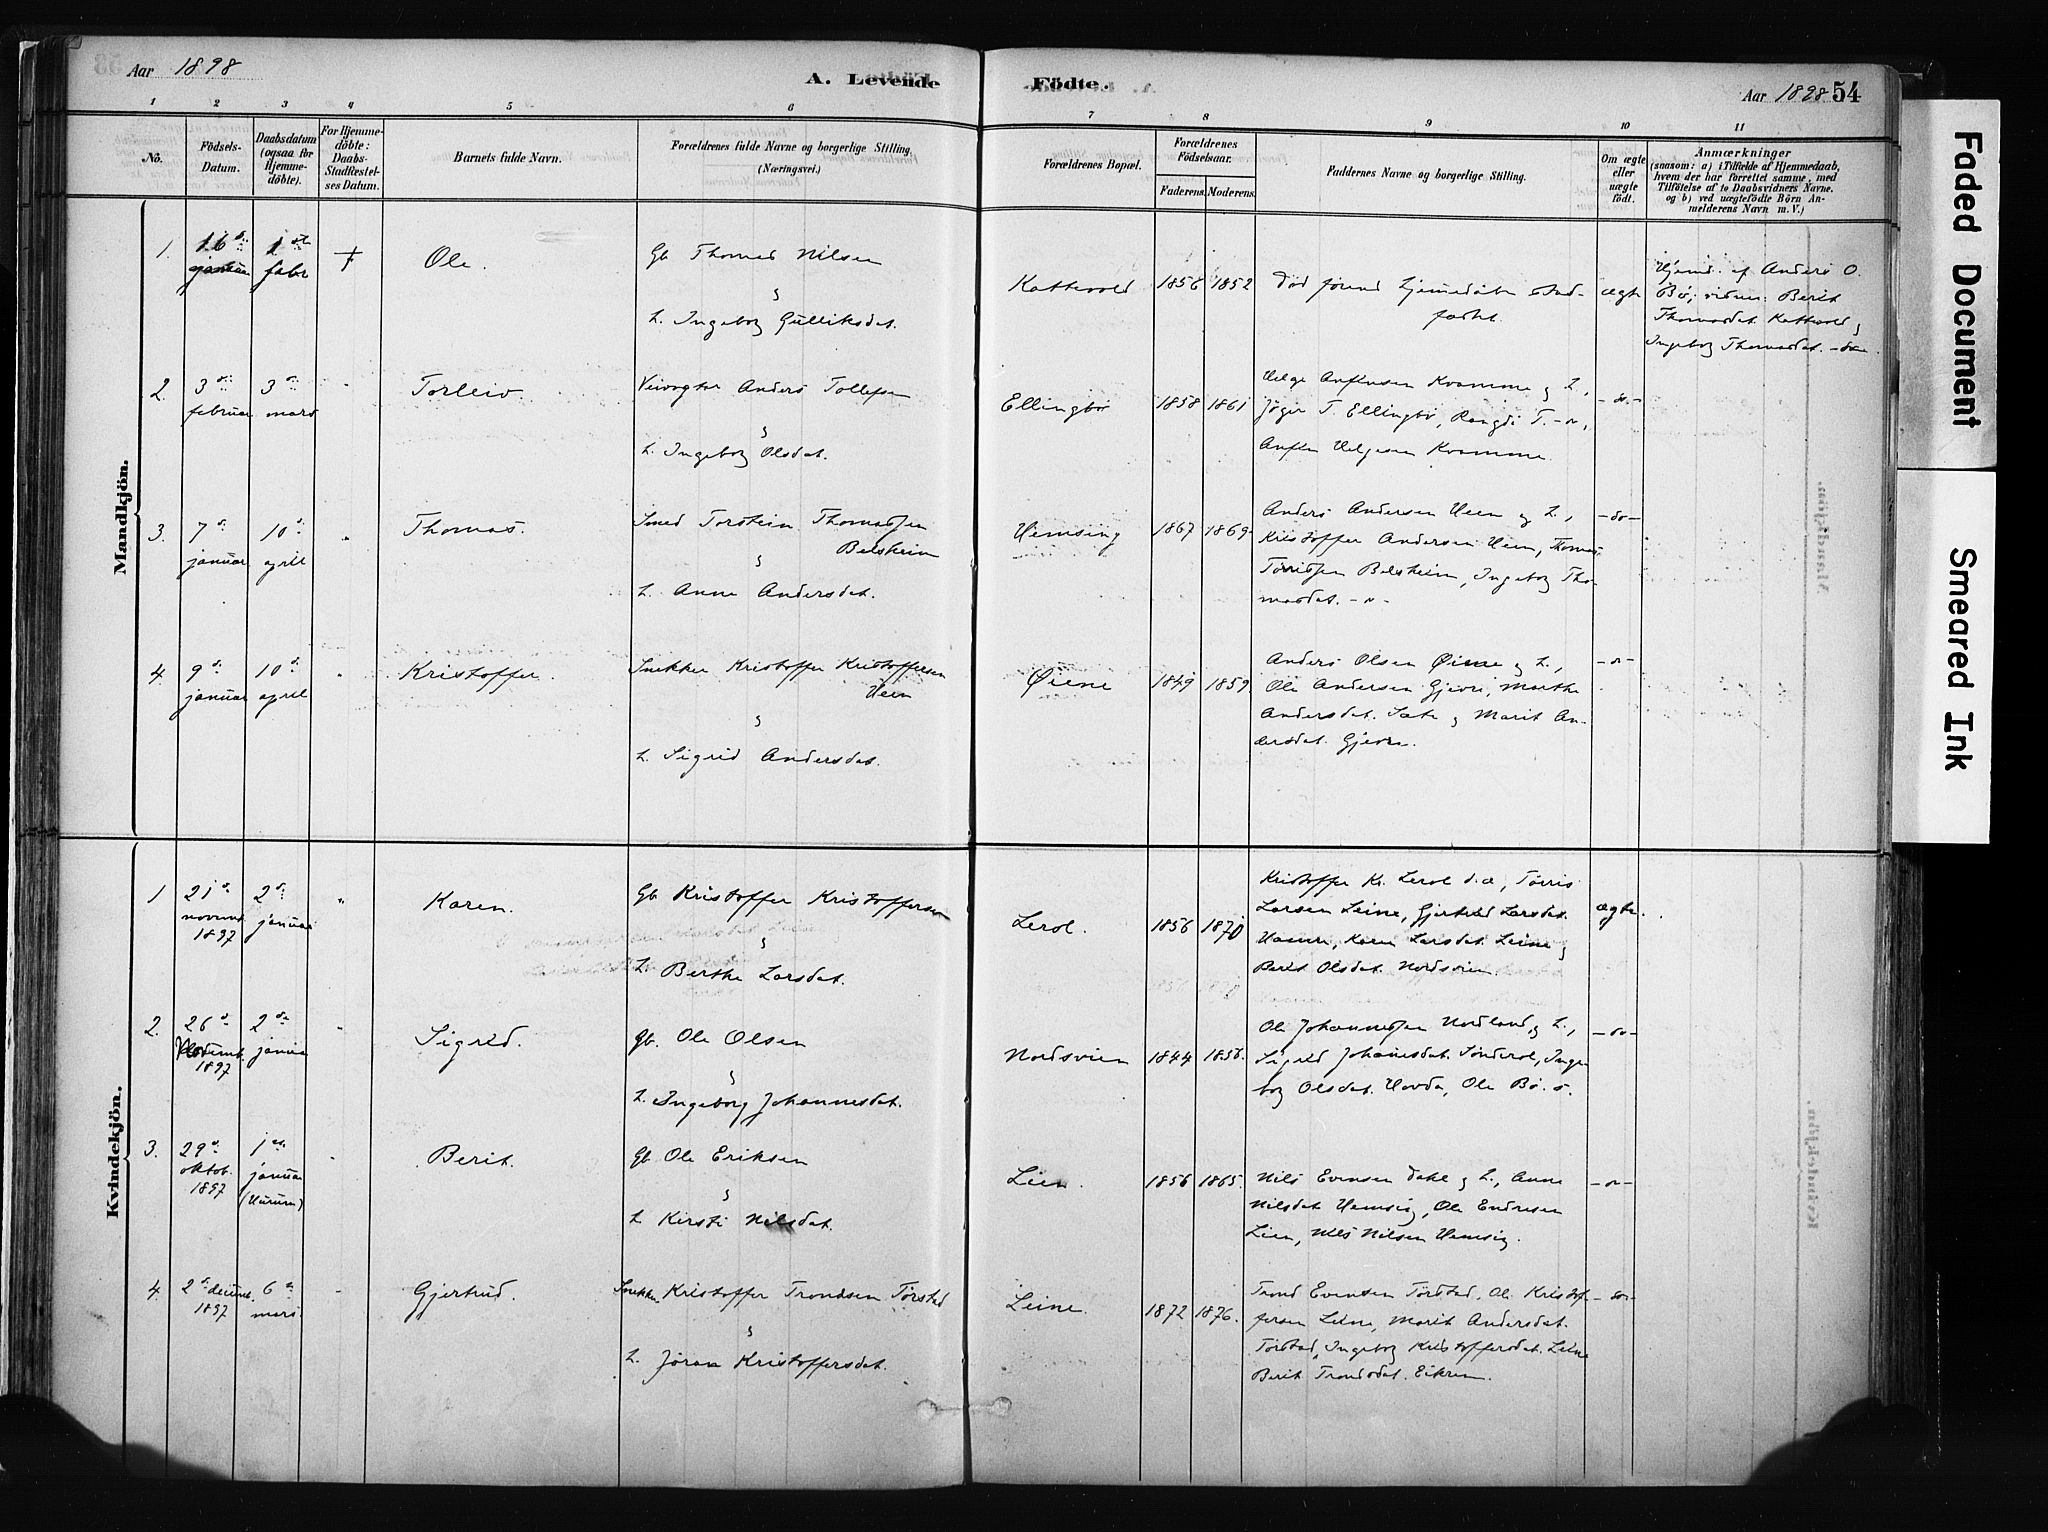 Aar 1898
A. Levende
Födte.
Aar 1898
54
1 2 3 4 5 6 7 8 9 10 11
No.
Födsels-
Datum.
Daabsdatum
(ogsaa for
Hjemme-
döbte).
For Hjemme-
döbte:
Daabs-
Stadfæstel-
ses Datum.
Barnets fulde Navn.
Forældrenes fulde Navne og borgerlige Stilling.
(Næringsvei.)
Forældrenes Bopæl.
Forældrenes
Födselsaar.
Faderens. Moderens.
Faddernes Navne og borgerlige Stilling.
Om ægte
eller
uægte
födt.
Anmærkninger
(saasom: a) i Tilfælde af Hjemmedaab,
hvem der har forrettet samme, med
Tilföielse af to Daabsvidners Navne.
og b) ved uægtefödte Börn An-
melderens Navn m. V.)
Mandkjön.
1. 16 januar 1 febr † Ole.
Gb. Thomas Nilsen
&
h. Ingeborg Gulliksdat.
Kattevold 1856 1852
Død førend hjemmedåben stad-
fæstet.
ægte
Hjemd. af Anders O.
Bø, vidner Berit
Thomasdat. Kattevold &
Ingeborg Thomasdat. -do-
2. 3 februar 3 mars " Torleiv.
Veivogter Anders Tollefsen
&
h. Ingeborg Olsdat.
Ellingbø 1858 1861
Helge Anfinsen Kvamme & h.,
Jøger T. Ellingbø, Rangdi T. -"-,
Anfin Helgesen Kvamme
-do-
3. 7 januar 10 april " Thomas.
Smed Torstein Thomassen
Belsheim
&
h. Anne Andersdat.
Hemsing 1867 1869
Anders Andersen Heen & h.,
Kristoffer Andersen Heen, Thomas
Torrissen Belsheim, Ingeborg Tho-
masdat. -"-
-do-
4. 9 januar 10 april " Kristoffer.
Snekker Kristoffer Kristoffersen
Heen
&
h. Sigrid Andersdat.
Øiene 1849 1859
Anders Olsen Øiene & h.,
Ole Andersen Gjevre, Marthe
Andersdat. Sæte & Marit An-
dersdat. Gjevre.
-"-
Kvindekjön.
1 21 novemb. 1897 2 januar " Karen.
Gb. Kristoffer Kristoffersen
&
h. Berthe Larsdat.
Lerol. 1856 1870
Kristoffer Kr. Lerol d.æ, Torris
Larsen Leine, Gjertrud Larsdat.
Hamre, Karen Larsdat. Leine &
Berit Olsdat. Nordsvien.
ægte.
2. 26 1897 2 januar " Sigrid.
Gb. Ole Olsen
&
h. Ingeborg Johannesdat.
Nordsvien 1844 1856.
Ole Johannessen Nordland & h.,
Sigrid Johannesdat. Sønderol, Inge-
borg Olsdat. Hovda, Ole Bø.
-do-
3. 29 oktob. 1897 1 januar (Hurum) " Berit.
Gb. Ole Eriksen
&
h. Kirsti Nilsdat.
Lien. 1856 1865.
Nils Evensen Dahl & h., Anne
Nilsdat Hemsig, Ole Endresen
Lien, Nils Nilsen Hemsig.
-"-
4. 2 decemb. 1897 6 mars. " Gjertrud.
Snekker Kristoffer Trondsen Tørstad
&
h. Jøran Kristoffersdat.
Leine. 1872 1876.
Trond Evensen Tørstad, Ole Kristof-
fersen Leine, Marit Andersdat.
Tørstad, Ingeborg Kristoffersdat. Leine
Berit Trondsdat. Eikren.
-do-
Faded Document
Smeared Ink